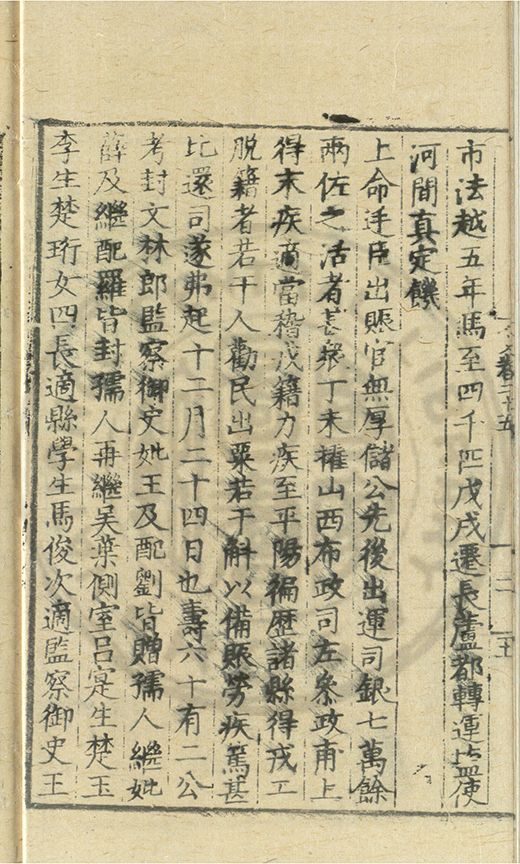 市法越五年馬至四千匹戊戌遷長盧都轉運鹽使
河間真定饑
上命廷臣出賑官無厚儲公先後出運司銀七萬餘
兩佐之活者甚眾丁未擢山西布政司左叅政甫上
得末疾適當稽戎籍力疾至平陽徧歴諸縣得戎工
脱籍者若干人勸民出粟若干斛以備賑勞疾篤甚
比還司遂弗起十二月二十四日也壽六十有二公
考封文林郎監察御史妣王及配劉皆贈孺人繼妣
薛及繼配羅皆封孺人再繼吴葉側室呂寔生楚玉
李生楚珩女四長適縣學生馬俊次適監察御史王
卷三十五
二